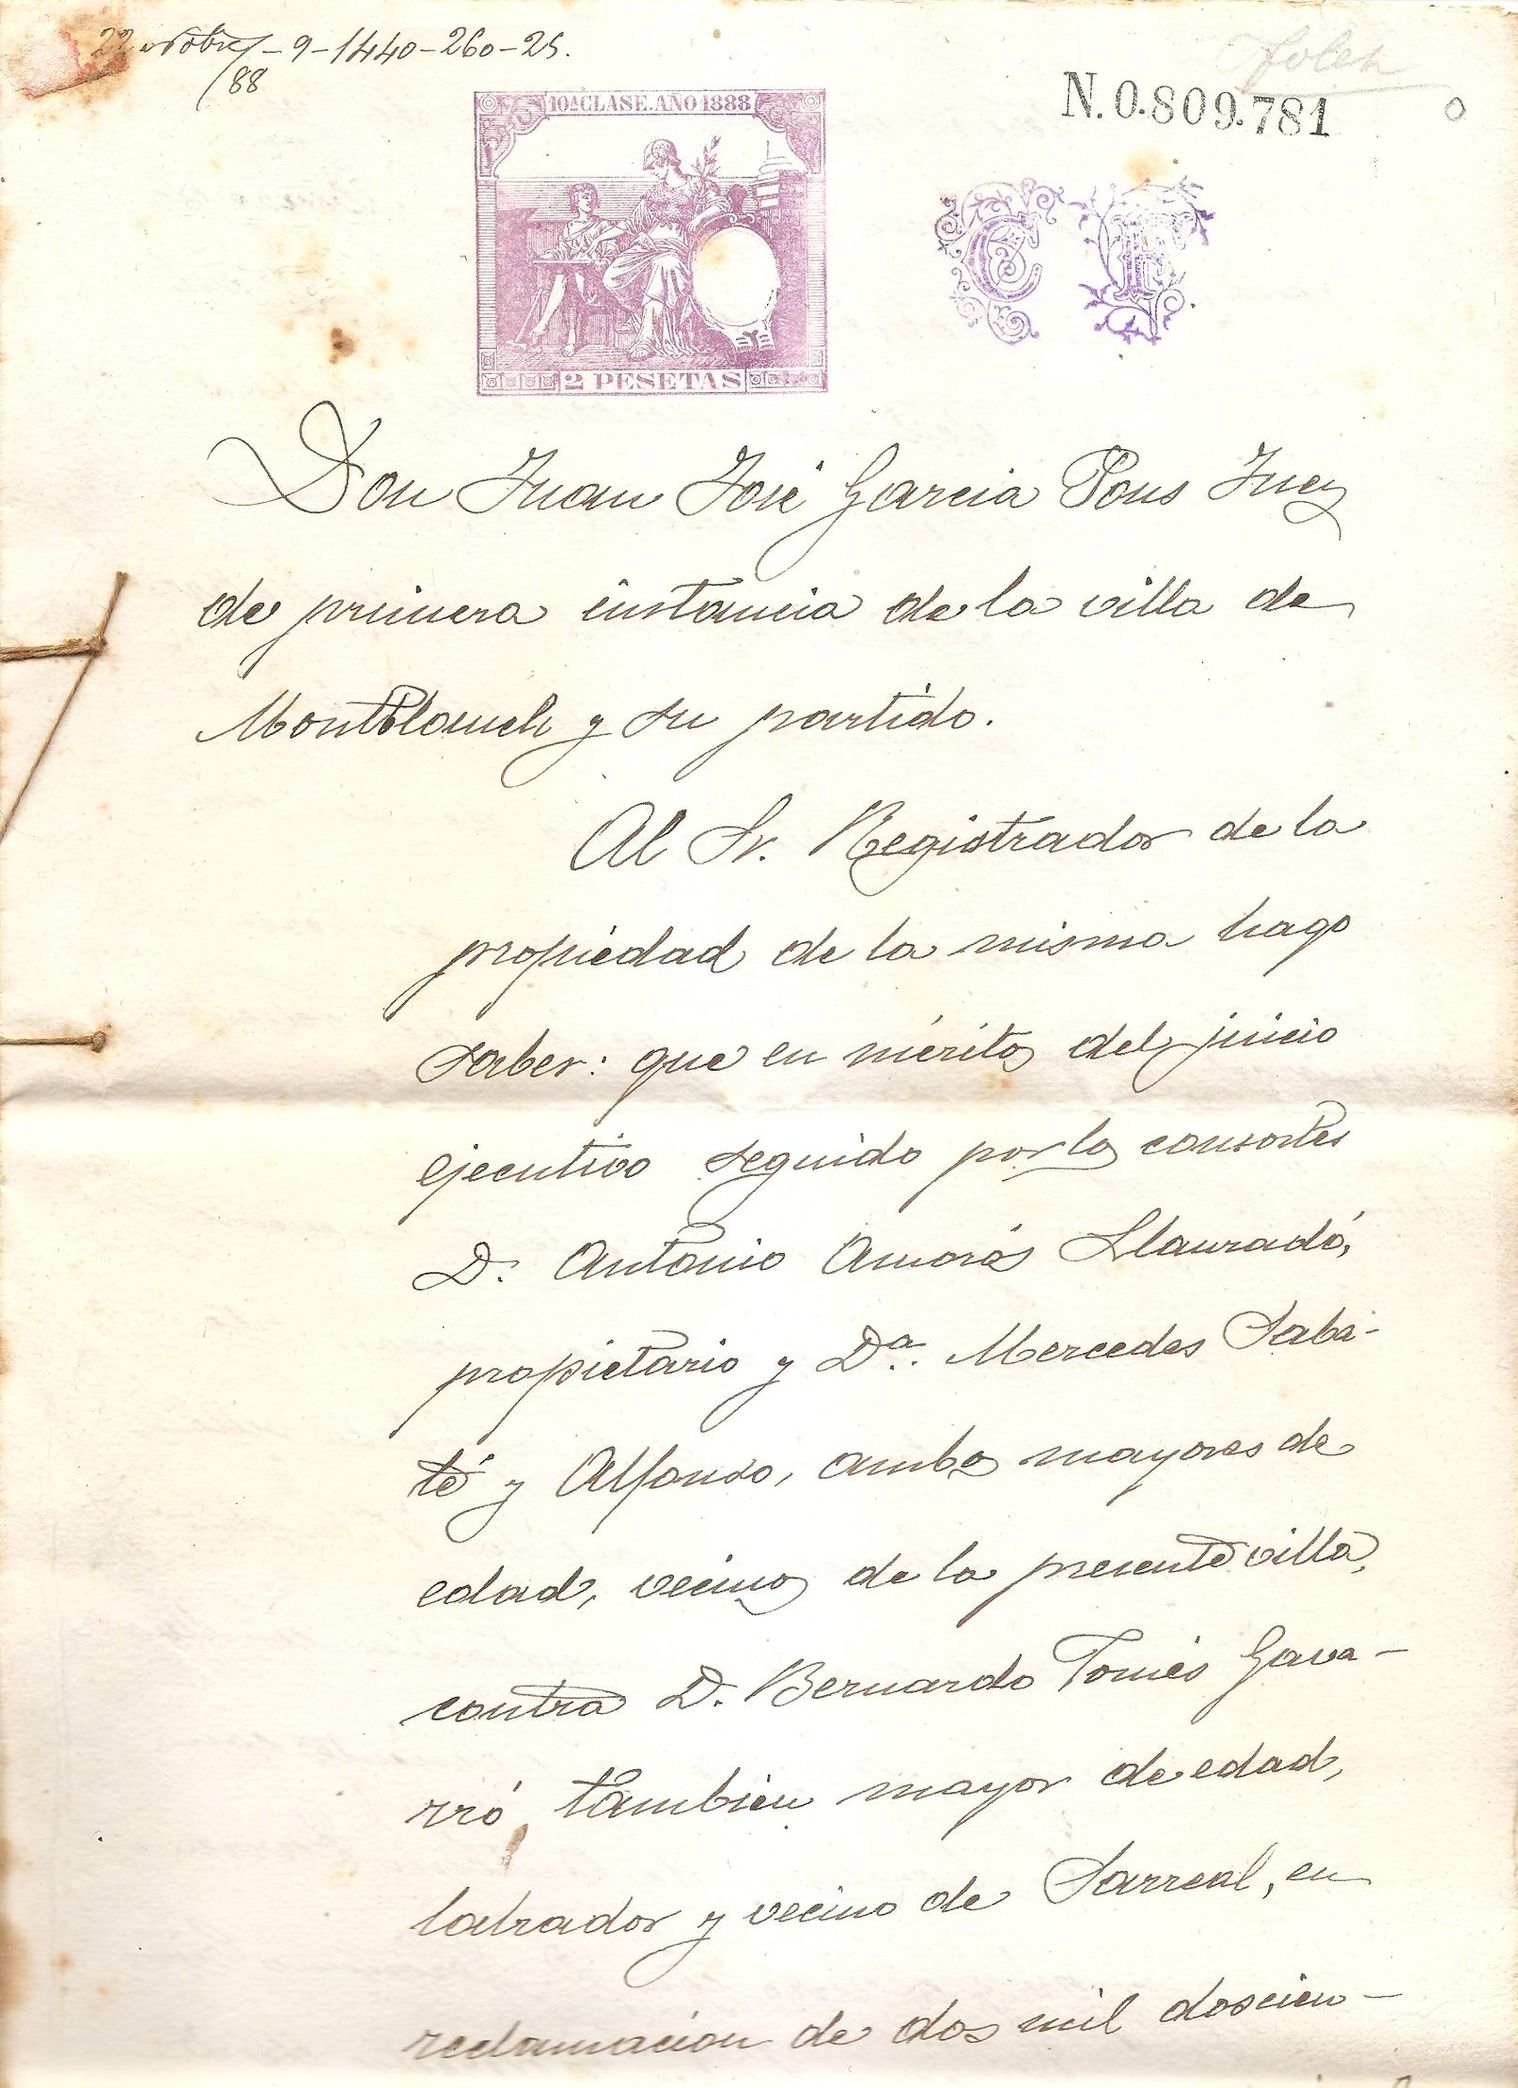 22 Nobre/88 - 9 - 1440 - 260 - 25.
N. 0.809.781
10ª CLASE. AÑO 1888
2 PESETAS
Don Juan José Garcia Pons Juez
de primera instancia de la villa de
Montblanch y su partido.
Al Sr. Registrador de la
propiedad de la misma hago
saber: que en méritos del juicio
ejecutivo seguido por los consortes
D. Antonio Amorós Llauradó,
propietario y Dª. Mercedes Saba-
té y Alfonso, ambos mayores de
edad, vecinos de la presente villa,
contra D. Bernardo Tomés Gava-
rró, tambien mayor de edad,
labrador y vecino de Sarreal, en
reclamacion de dos mil doscien-